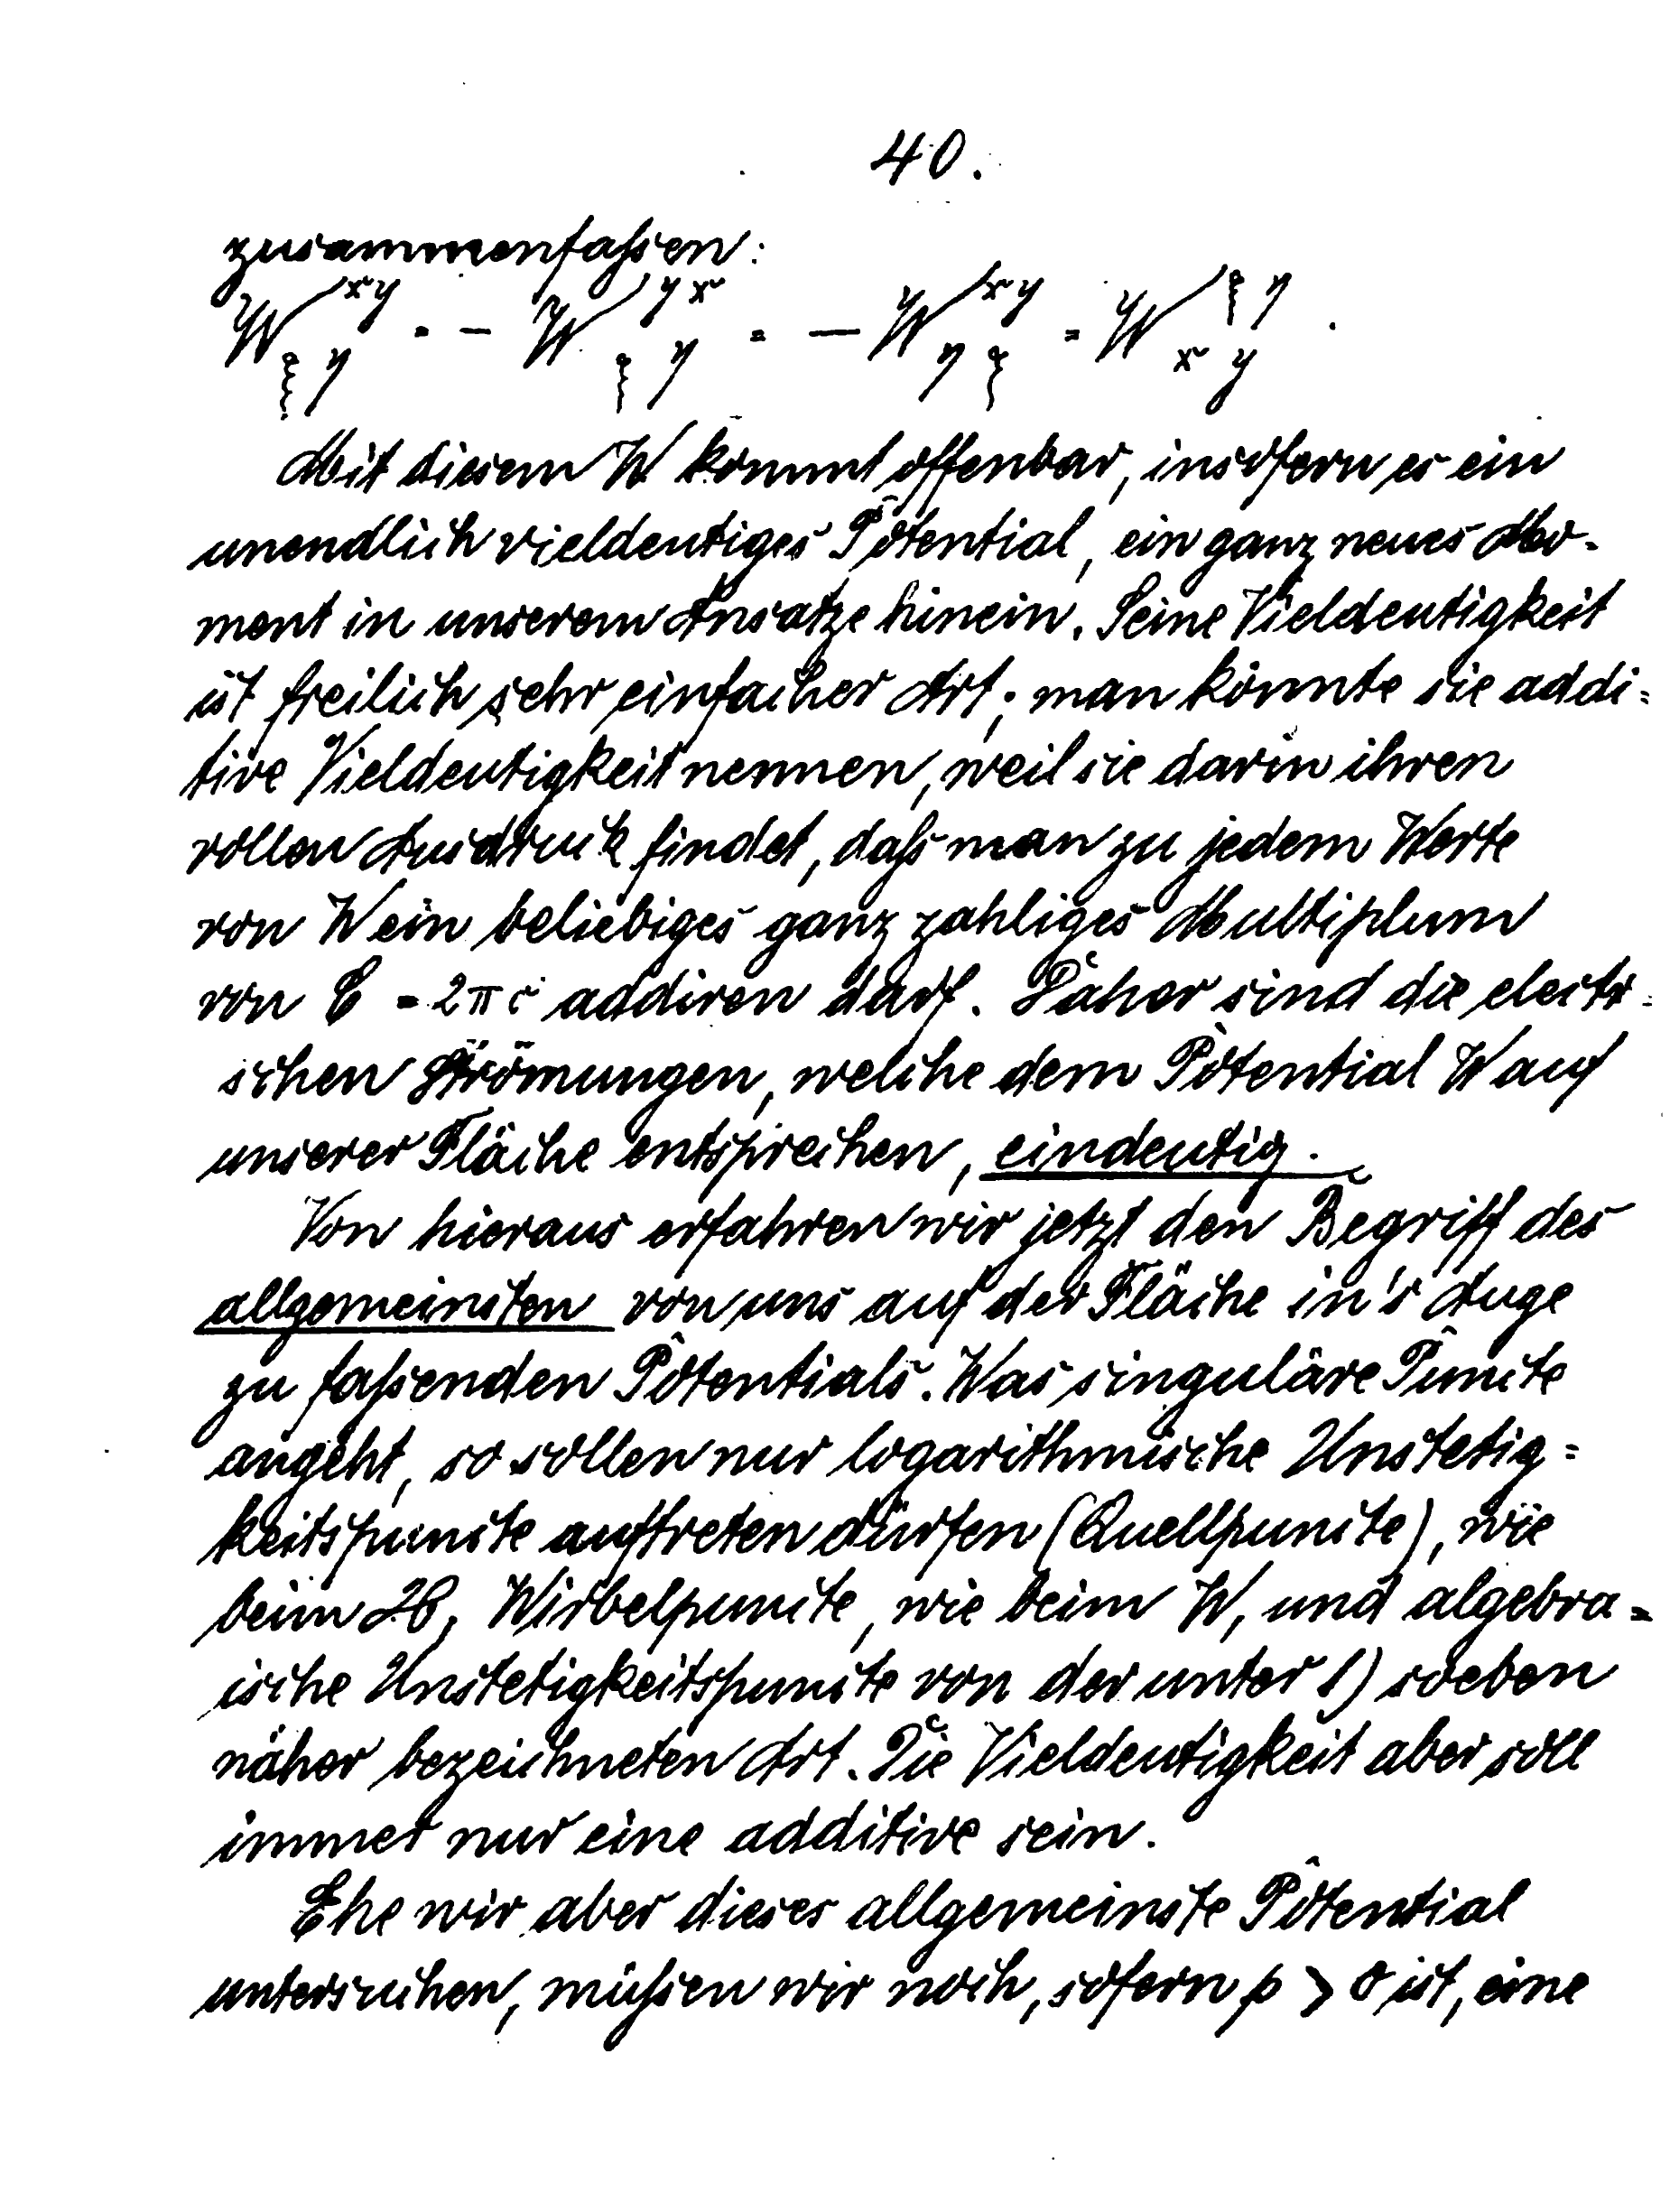 40.
zusammenfaßen:
W^{xy}_{ξη} = - W^{yx}_{ξη} = - W^{xy}_{ηξ} = W^{ξη}_{xy}.
Mit diesem W kommt offenbar, insofern es ein
unendlich vieldeutiges Potential, ein ganz neues Mo-
ment in unserem Ansatze hinein. Seine Vieldeutigkeit
ist freilich sehr einfacher Art; man könnte sie addi=
tive Vieldeutigkeit nennen, weil sie darin ihren
vollen Ausdruck findet, daß man zu jedem Werte
von W ein beliebiges ganz zahliges Multiplum
von = 2π addiren darf. Daher sind die electr=
schen Strömungen, welche dem Potential W auf
unserer Fläche entsprechen, eindeutig.
Von hieraus erfahren wir jetzt den Begriff des
allgemeinsten von uns auf der Fläche in's Auge
zu faßenden Potentials. Was singuläre Puncte
angeht, so sollen nur logarithmische Unstetig=
keitspuncte auftreten dürfen (Quellpuncte), wie
beim Wirbelpuncte, wie beim W, und algebra=
ische Unstetigkeitspuncte von der unter 1) soeben
näher bezeichneten Art. Die Vieldeutigkeit aber soll
immer nur eine additive sein.
Ehe wir aber dieses allgemeinste Potential
untersuchen, müßen wir noch, sofern p > 0 ist, eine